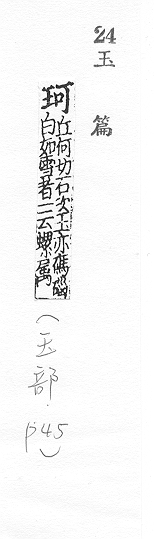 24
玉篇
珂
丘何切石次玉亦碼碯
白如雪者一云螺属
(玉部
p45)